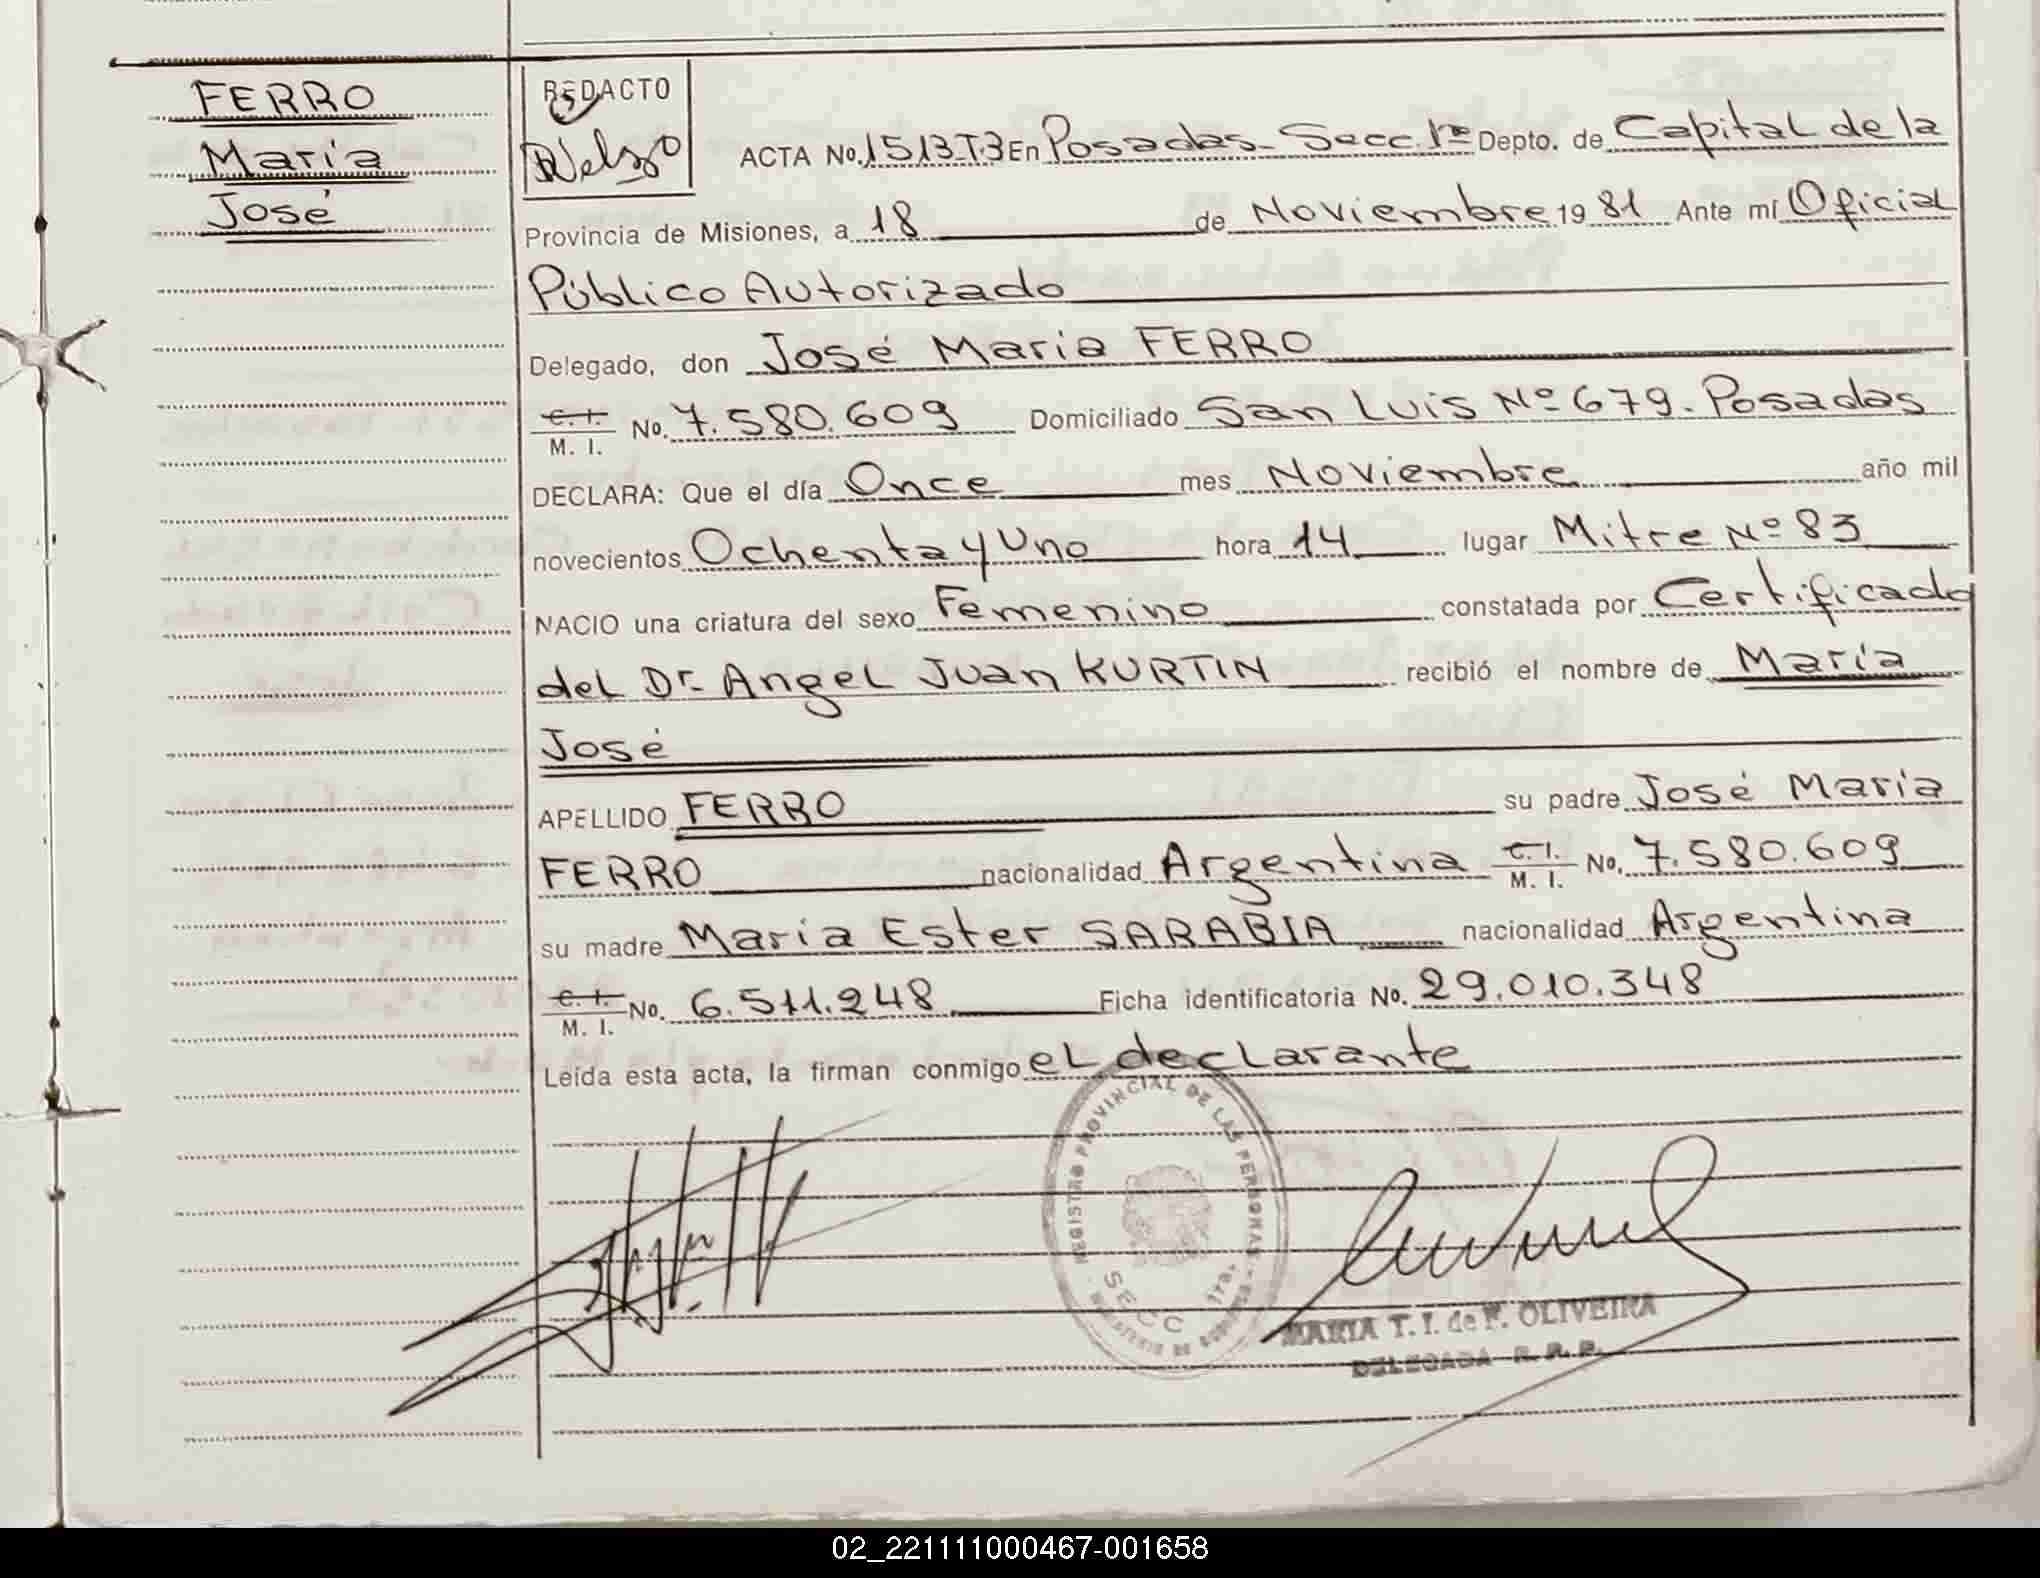 FERRO
María
José
REDACTO
ACTA No. 1513-T.3 En Posadas - Secc. 1ra Depto. de Capital de la
Provincia de Misiones, a 18 de Noviembre 19 81 Ante mí Oficial
Público Autorizado
Delegado, don José Maria FERRO
C. I. / M. I. No. 7.580.609 Domiciliado San Luis Nº 679. Posadas
DECLARA: Que el día Once mes Noviembre año mil
novecientos Ochenta y Uno hora 14 lugar Mitre Nº 83
NACIO una criatura del sexo Femenino constatada por Certificado
del Dr. Angel Juan KURTIN recibió el nombre de María
José
APELLIDO FERRO su padre José María
FERRO nacionalidad Argentina C. I. / M. I. No. 7.580.609
su madre Maria Ester SARABIA nacionalidad Argentina
C. I. / M. I. No. 6.511.248 Ficha identificatoria No. 29.010.348
Leída esta acta, la firman conmigo el declarante
REGISTRO PROVINCIAL DE LAS PERSONAS
SECC 1ra.
MINISTERIO DE GOBIERNO
MARIA T. I. de F. OLIVEIRA
DELEGADA R. P. P.
02_221111000467-001658